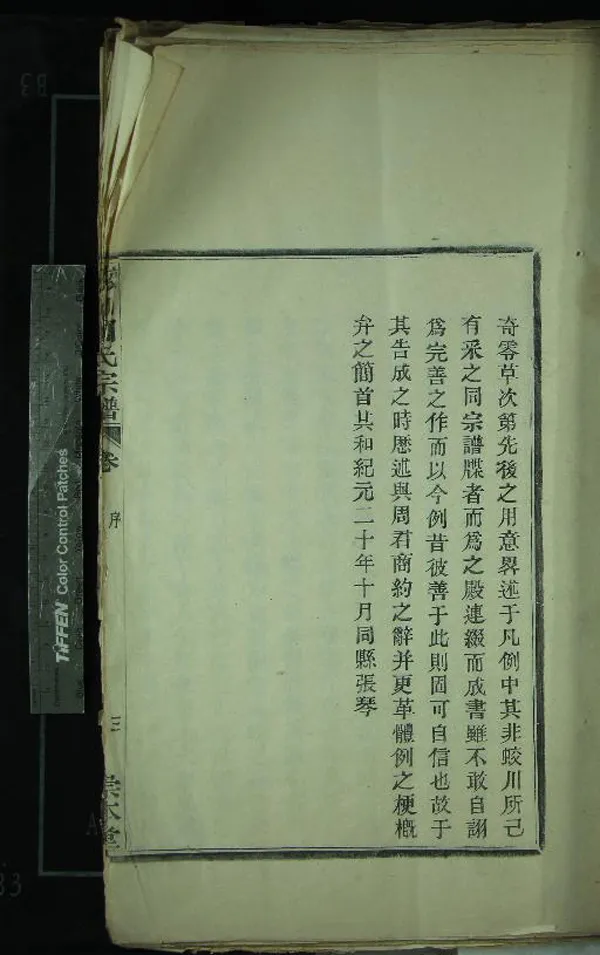 奇零草次第先後之用意畧述于凡例中其非蛟川所己
有釆之同宗譜牒者而爲之殿連綴而成書雖不敢自詡
爲完善之作而以今例昔彼善于此則固可自信也故于
其告成之時歷述與周君商約之辭并更革體例之梗概
弁之簡首共和紀元二十年十月同縣張琴
氏宗譜
卷
序
三
崇本堂
TIFFEN Color Control Patches
B3